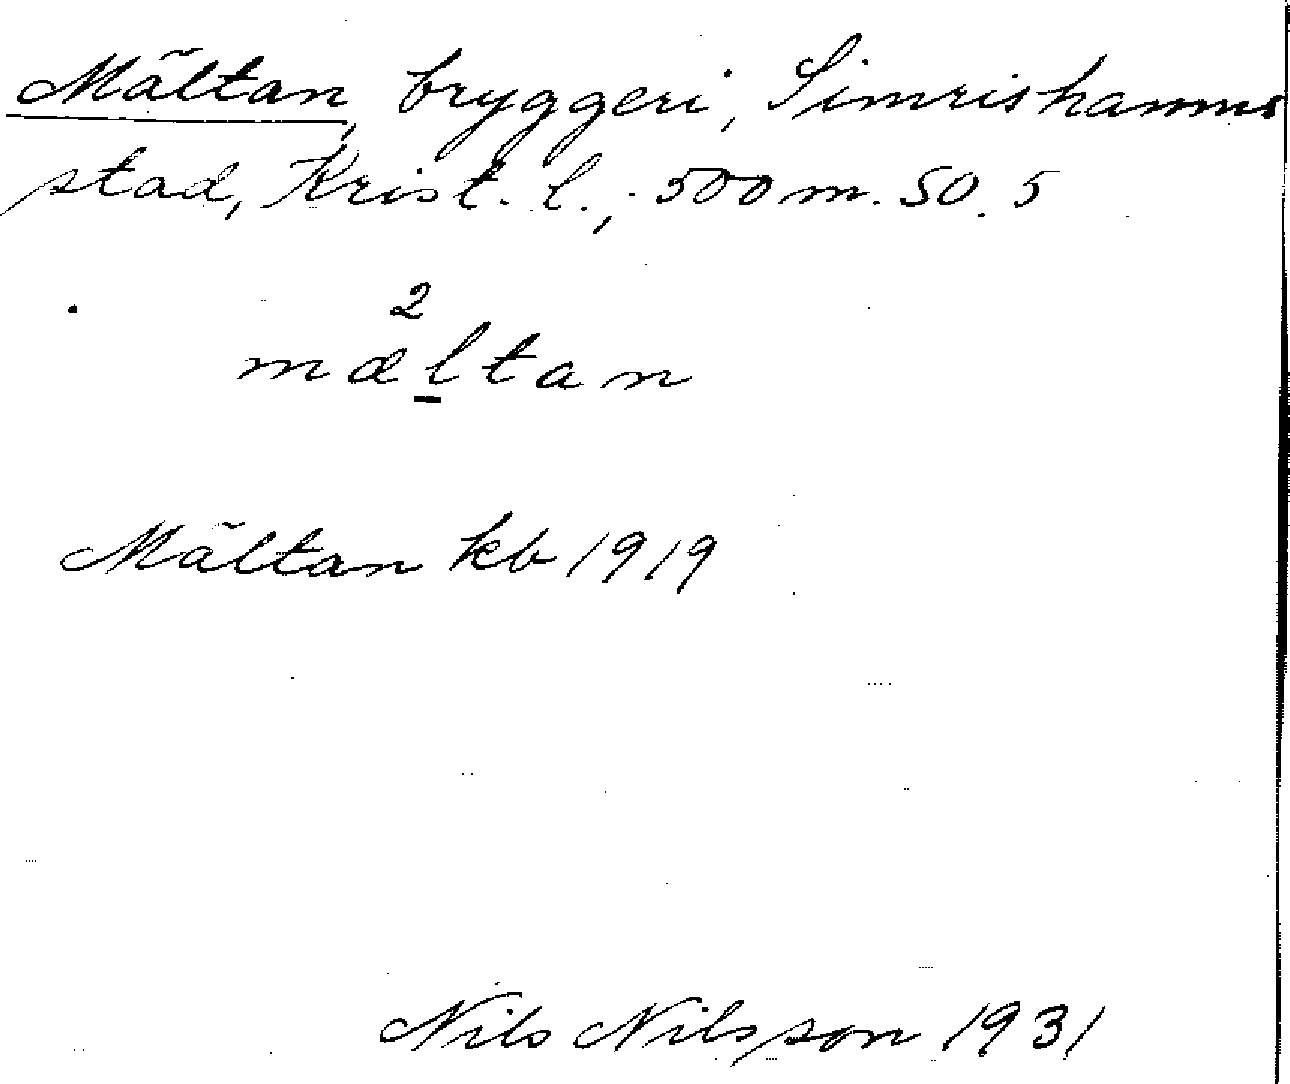 Mältan, bryggeri, Simrishamns
stad, Krist. l., 500 m. SO. 5
2
mæltan
Mältan kb 1919
Nils Nilsson 1931